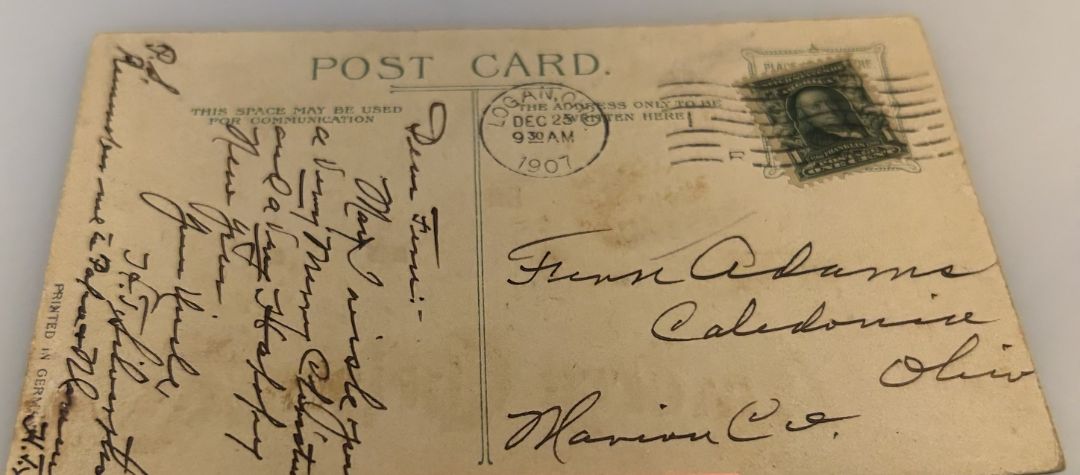 POST CARD.
THIS SPACE MAY BE USED
FOR COMMUNICATION
THE ADDRESS ONLY TO BE
WRITTEN HERE
PLACE
LOGAN, O.
DEC 23
9 30 AM
1907
FRANKLIN
ONE CENT
Fenn Adams
Caledonia
Ohio
Marion Co.
Dear Fenn:-
May I wish you
a Very Merry
and a Very Happy
New Year
Your Uncle
P.S.
Remember me to Papa
PRINTED IN GER